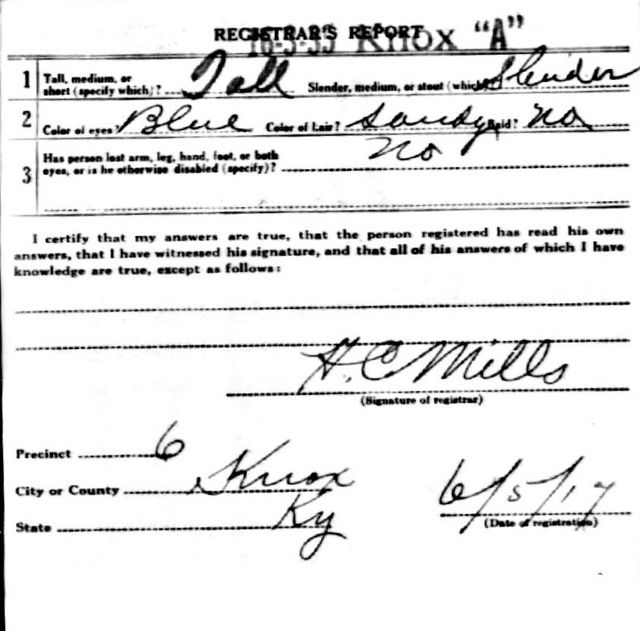 REGISTRAR'S REPORT
16-3-33 Knox "A"
1 Tall, medium, or short (specify which)? Tall Slender, medium, or stout (which)? Slender
2 Color of eyes? Blue Color of hair? Sandy Bald? No
3 Has person lost arm, leg, hand, foot, or both
eyes, or is he otherwise disabled (specify)? No
I certify that my answers are true, that the person registered has read his own
answers, that I have witnessed his signature, and that all of his answers of which I have
knowledge are true, except as follows:
H. C Mills
(Signature of registrar)
Precinct 6
City or County Knox
State Ky
6/5/17
(Date of registration)